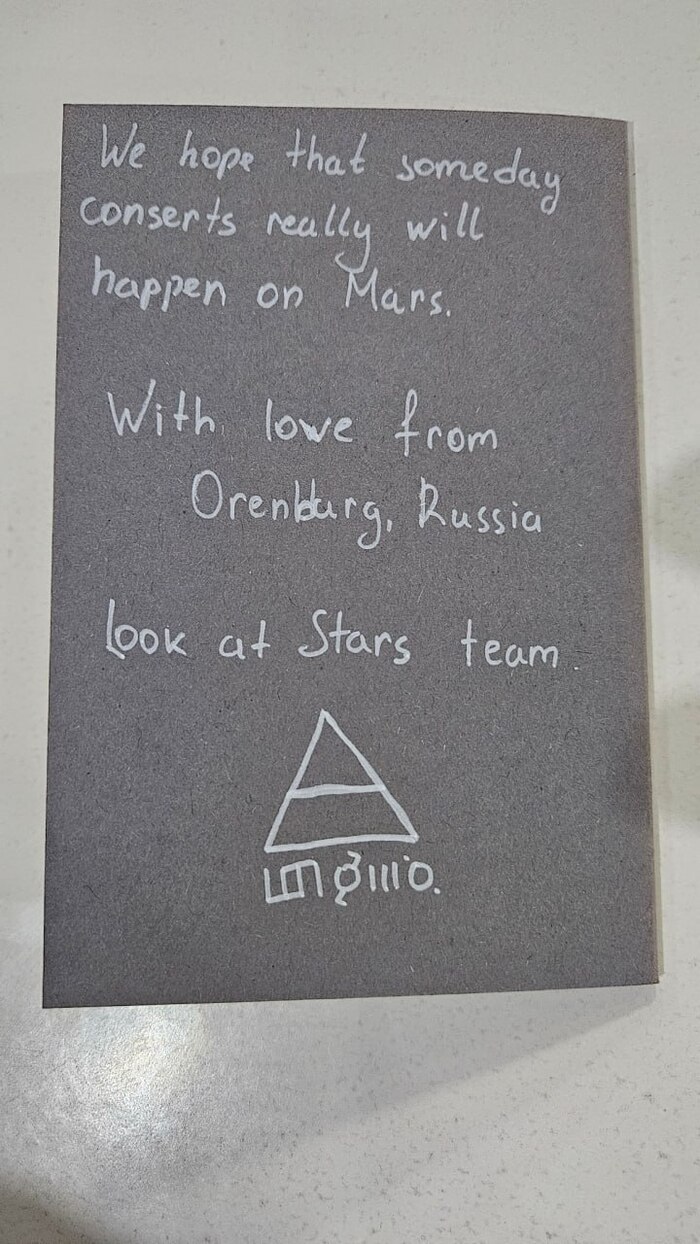 We hope that someday
conserts really will
happen on Mars.
With lowe from
Orenburg, Russia
Look at Stars team.